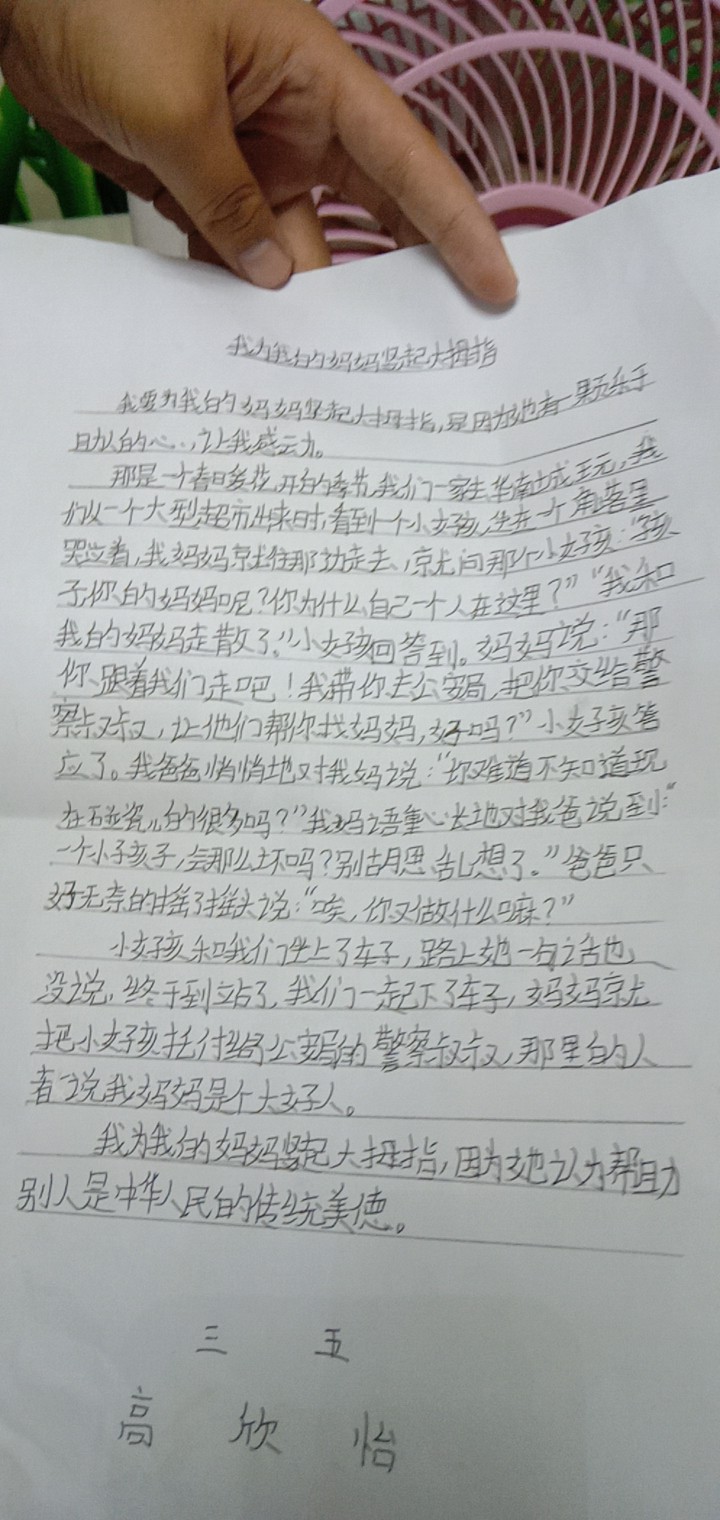 我为我的妈妈竖起大拇指
我要为我的妈妈竖起大拇指,是因为她有一颗乐于
助人的心,让我感动。
那是一个春日暖花开的季节,我们一家在华南城玩,我
们从一个大型超市出来时,看到一个小女孩,坐在一个角落里
哭泣着,我妈妈就往那边走去,就问那个小女孩:“孩
子,你的妈妈呢?你为什么自己一个人在这里?”“我和
我的妈妈走散了。”小女孩回答到。妈妈说:“那
你跟着我们走吧!我带你去公安局,把你交给警
察叔叔,让他们帮你找妈妈,好吗?”小女孩答
应了。我爸爸悄悄地对我妈说:“你难道不知道现
在碰瓷儿的很多吗?”我妈语重心长地对我爸说到:“
一个小孩子,会那么坏吗?别胡思乱想了。”爸爸只
好无奈的摇了摇头说:“唉,你又做什么嘛?”
小女孩和我们坐上了车子,路上她一句话也
没说,终于到站了,我们一起下了车子,妈妈就
把小女孩托付给公安局的警察叔叔,那里的人
都说我妈妈是个大好人。
我为我的妈妈竖起大拇指,因为她认为帮助
别人是中华人民的传统美德。
三 五
高 欣 怡